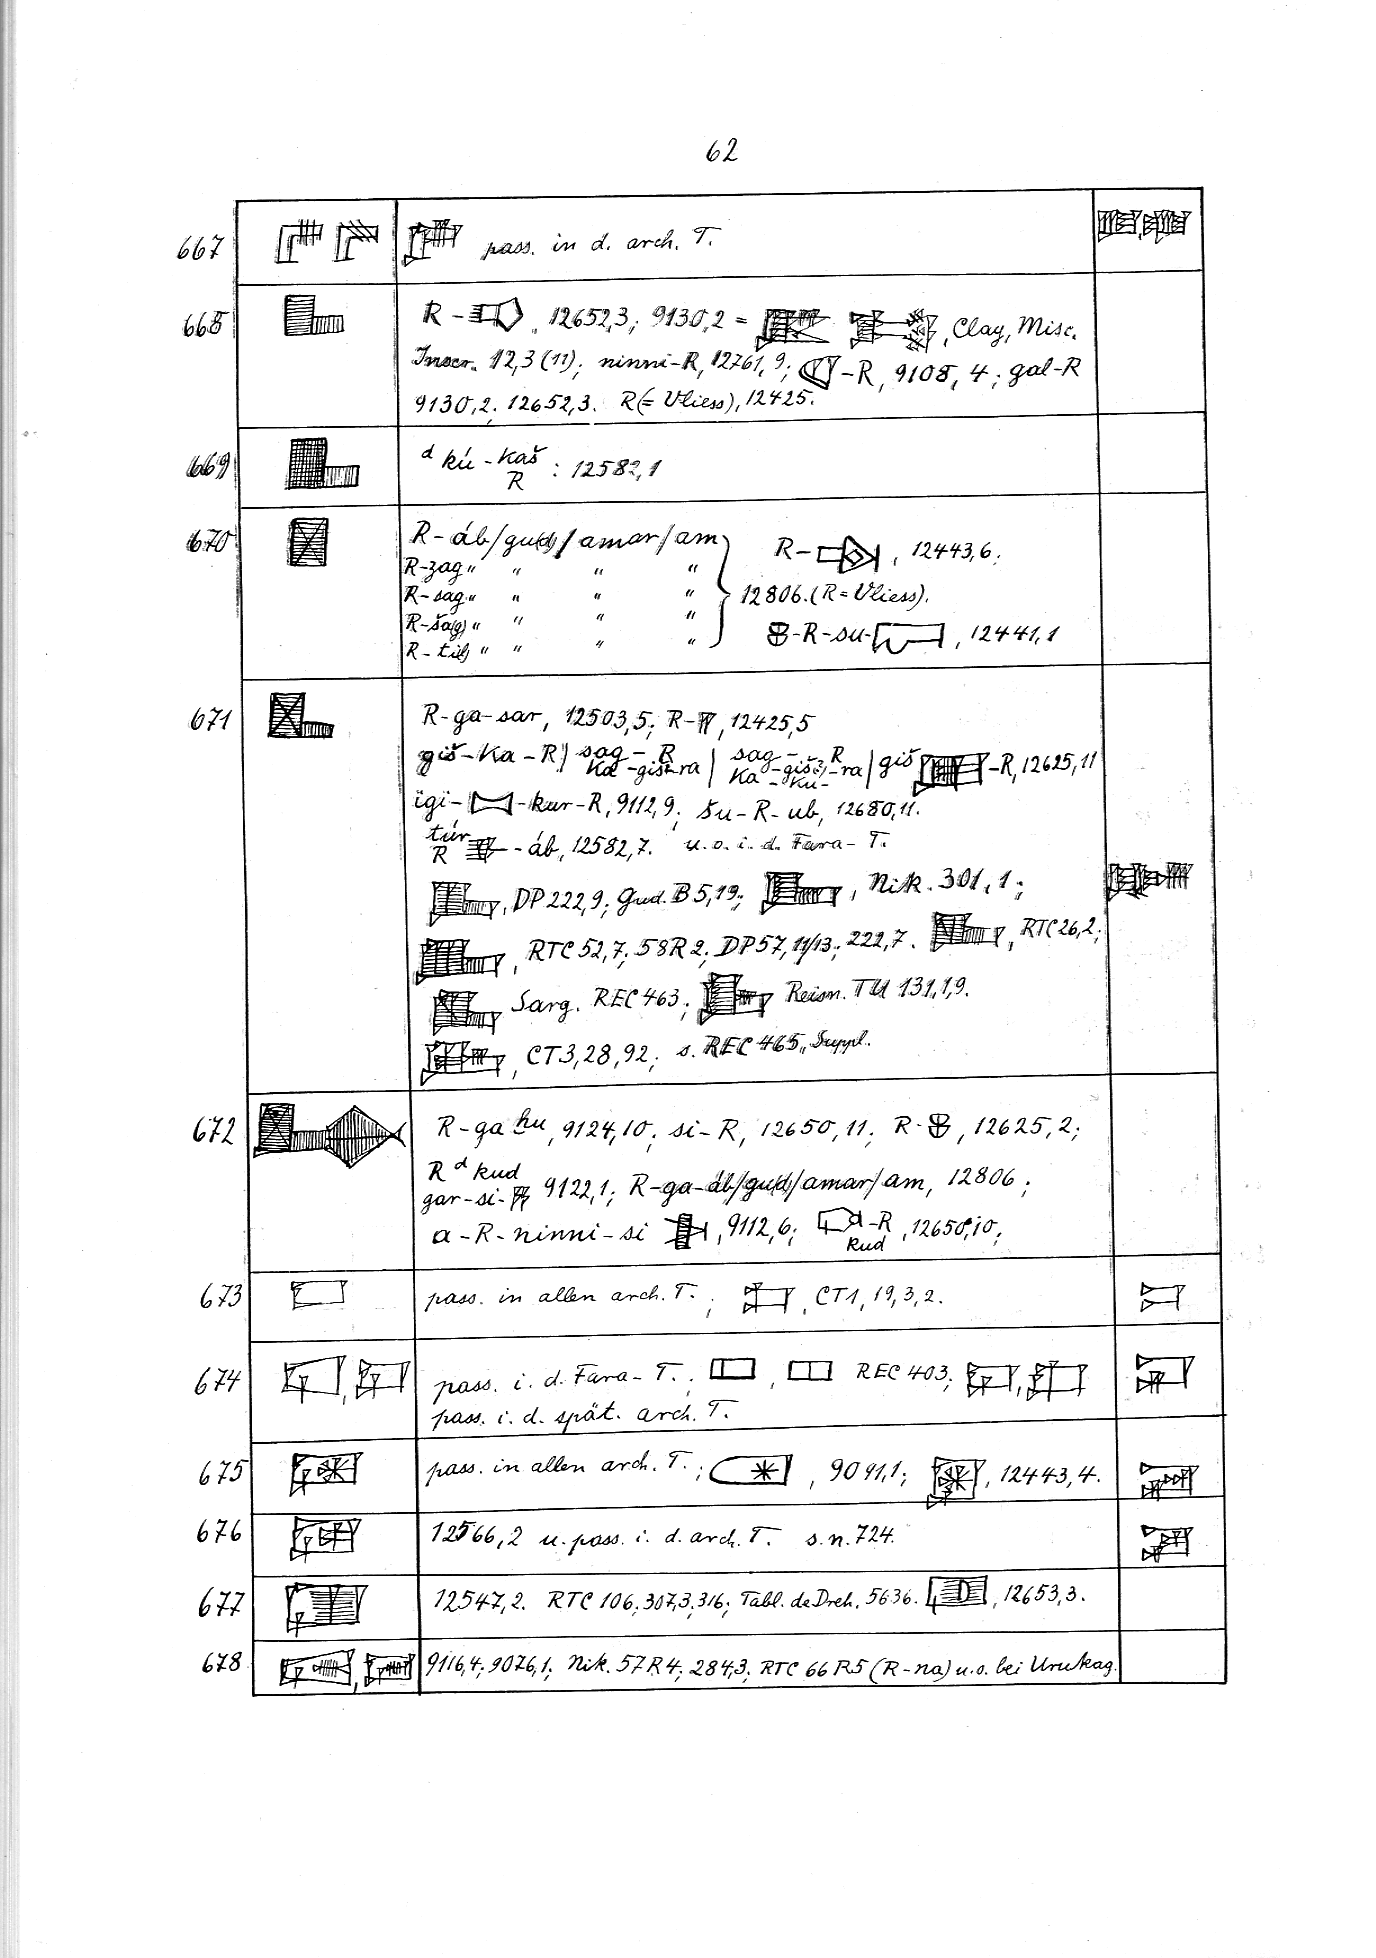 62
667 pass. in d. arch. T.
668 R - , 12652,3; 9130,2 = , Clay, Misc.
Inscr. 12,3 (11); ninni-R, 12761,9; -R, 9108,4; gal-R
9130,2; 12652,3. R (= Vliess), 12425.
669 d kú - kaš
R : 12582,1
670 R - áb/gu(d)/amar/am R- , 12443,6;
R-zag " " " "
R-sag " " " " 12806. (R = Vliess).
R-ša(g) " " " "
R-ti(l) " " " " -R-su- , 12441,1
671 R-ga-sar, 12503,5; R- , 12425,5
giš-ka-R/ sag - R / sag - R / giš -R, 12625,11
ka -giš-ra ka -giš-ra
- kú -
igi- -kur-R, 9112,9; šu-R-ub, 12680,11.
túr
R -áb, 12582,7. u.o.i.d. Fara-T.
, DP 222,9; Gud. B 5,19; , Nik. 301,1;
, RTC 52,7; 58 R 2; DP 57, 11/13; 222,7. , RTC 26,2;
Sarg. REC 463; Reisn. TU 131,1,9.
, CT 3,28,92; s. REC 465, Suppl.
672 R-ga hu, 9124,10; si-R, 12650,11; R- , 12625,2;
R d kud
gar-si- 9122,1; R-ga-áb/gu(d)/amar/am, 12806;
a-R-ninni-si , 9112,6; -R , 12650,10;
kud
673 pass. in allen arch. T. ; , CT 1, 19,3,2.
674 pass. i. d. Fara-T. ; , REC 403; ,
pass. i. d. spät. arch. T.
675 pass. in allen arch. T. ; , 9091,1; , 12443,4.
676 12566,2 u. pass. i. d. arch. T. s. n. 724.
677 12547,2. RTC 106; 307,3; 316; Tabl. de Dreh. 5636. , 12653,3.
678 9116,4; 9076,1; Nik. 57 R 4; 284,3; RTC 66 R 5 (R-na) u. o. bei Urukag.